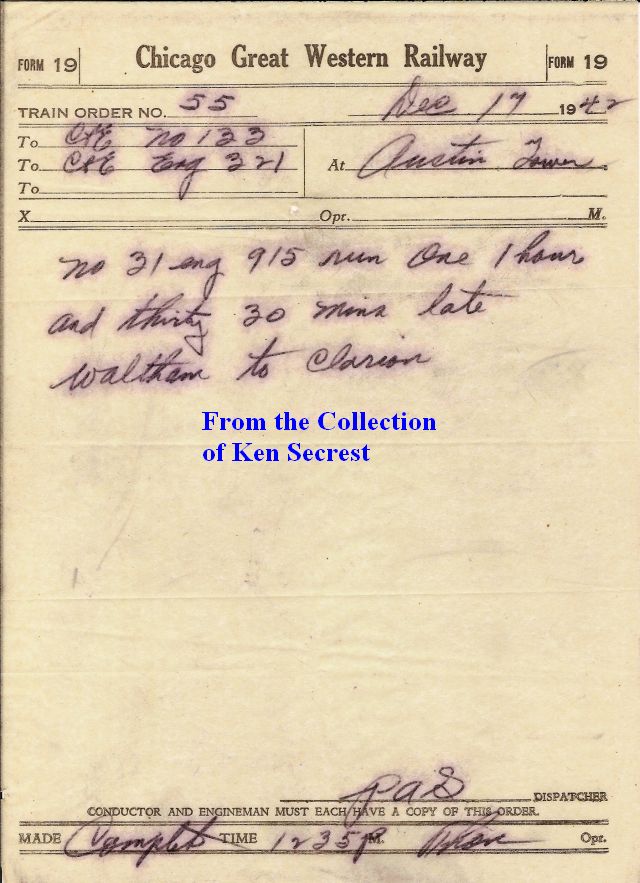 FORM 19 Chicago Great Western Railway FORM 19
TRAIN ORDER NO. 55 Dec 17 1942
To C&E No 133
To C&E Eng 321 At Austin Tower
To
X Opr. M.
No 31 eng 915 run One 1 hour
and thirty 30 mins late
Waltham to Clarion
From the Collection
of Ken Secrest
PAS DISPATCHER
CONDUCTOR AND ENGINEMAN MUST EACH HAVE A COPY OF THIS ORDER.
MADE Complete TIME 1235P M. Opr.